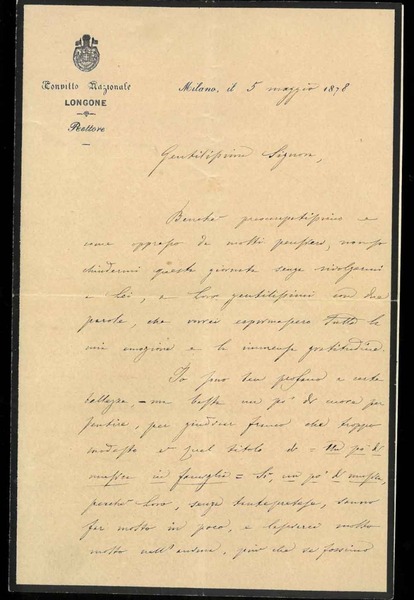 Convitto Nazionale
LONGONE
Rettore
Milano, il 5 maggio 1878
Gentilissimi Signori,
Benchè preoccupatissimo e
come oppresso da molti pensieri, non so
chiudermi questa giornata senza rivolgermi
a Lei, a Loro gentilissimi con due
parole, che vorrei esprimessero tutta la
mia emozione e la immensa gratitudine.
Io sono ben profano a certe
bellezze, - ma basta un po' di cuore per
sentire, per giudicar franco che troppo
modesto è quel titolo di = Un po' di
musica in famiglia = Sì, un po' di musica,
perchè Loro, senza tante pretese, sanno
far molto in poco, e lasciarci molto
molto nell'animo, più che se fossimo